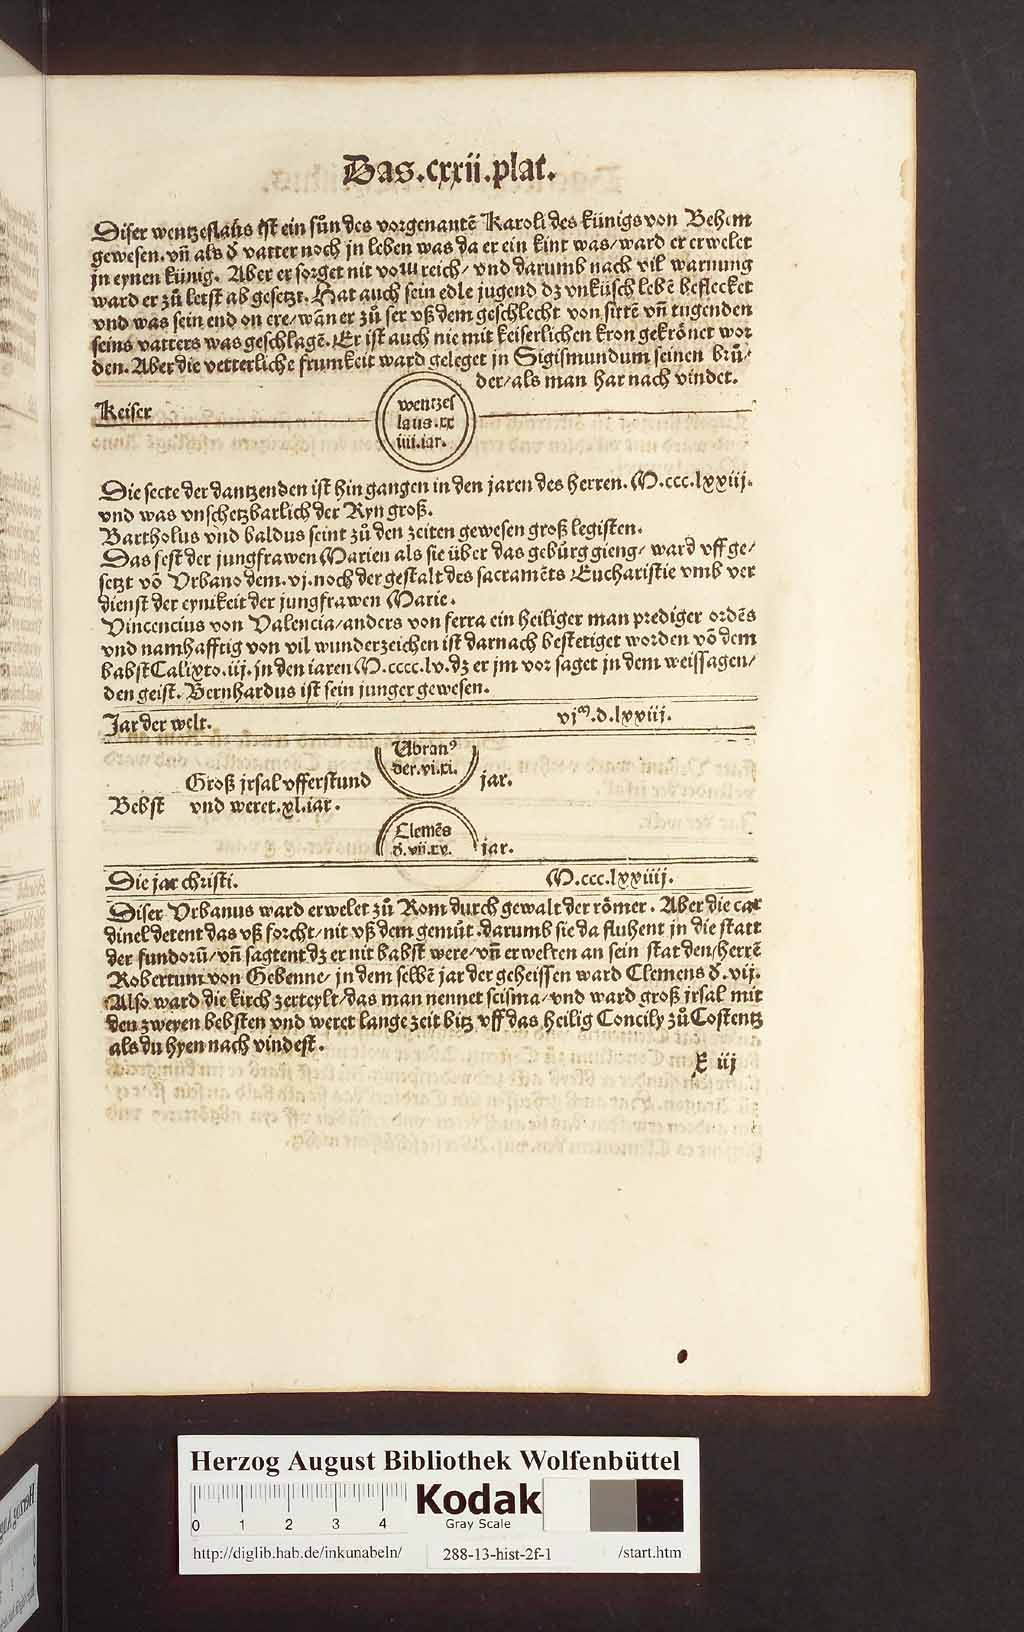 Das.cxxii.plat.
Diser wentzeslaus ist ein sůn des vorgenantē Karoli des künigs von Behem
gewesen. vñ als d̄ vatter noch jn leben was da er ein kint was/ward er erwelet
jn eynen künig. Aber er sorget nit vom reich/ vnd darumb nach vil warnung
ward er zů letst ab gesetzt. Hat auch sein edle jugend dz vnküsch lebē beflecket
vnd was sein end on ere/wān er zů ser vß dem geschlecht von sittē vñ tugenden
seins vatters was geschlagē. Er ist auch nie mit keiserlichen kron gekrönet wor
den. Aber die vetterliche frumkeit ward geleget jn Sigismundum seinen brů-
der/als man har nach vindet.
Keiser
wentzes
laus.xx
iiii.iar.
Die secte der dantzenden ist hin gangen in den jaren des herren. M.ccc.lxxiij.
vnd was vnschetzbarlich der Ryn groß.
Bartholus vnd baldus seint zů den zeiten gewesen groß legisten.
Das fest der jungfrawen Marien als sie über das gebürg gieng/ ward vff ge/
setzt vō Vrbano dem.vj.noch der gestalt des sacramēts Eucharistie vmb ver
dienst der eynikeit der jungfrawen Marie.
Vincencius von Valencia/anders von ferra ein heiliger man prediger ordēs
vnd namhafftig von vil wunderzeichen ist darnach bestetiget worden vō dem
babst Calixto.iij.jn den iaren M.cccc.lv.dz er jm vor saget jn dem weissagen/
den geist. Bernhardus ist sein junger gewesen.
Jar der welt.
vjᵐ.d.lxxiij.
Vbran⁹
der.vi.xi.
jar.
Groß jrsal vfferstund
Bebst
vnd weret.xl.iar.
Clemēs
d̄.vii.xv.
jar.
Die jar christi.
M.ccc.lxxiiij.
Diser Vrbanus ward erwelet zů Rom durch gewalt der römer. Aber die car
dinel detent das vß forcht/nit vß dem gemüt.darumb sie da fluhent jn die statt
der fundorū/vñ sagtent dz er nit babst were/vñ erwelten an sein stat den/herrē
Robertum von Gebenne/ jn dem selbē jar der geheissen ward Clemens d̄.vij.
Also ward die kirch zerteylt/das man nennet scisma/vnd ward groß jrsal mit
den zweyen bebsten vnd weret lange zeit bitz vff das heilig Concily zů Costentz
als du hyen nach vindest.
X iij
Herzog August Bibliothek Wolfenbüttel
0 1 2 3 4
Kodak
Gray Scale
http://diglib.hab.de/inkunabeln/
288-13-hist-2f-1
/start.htm